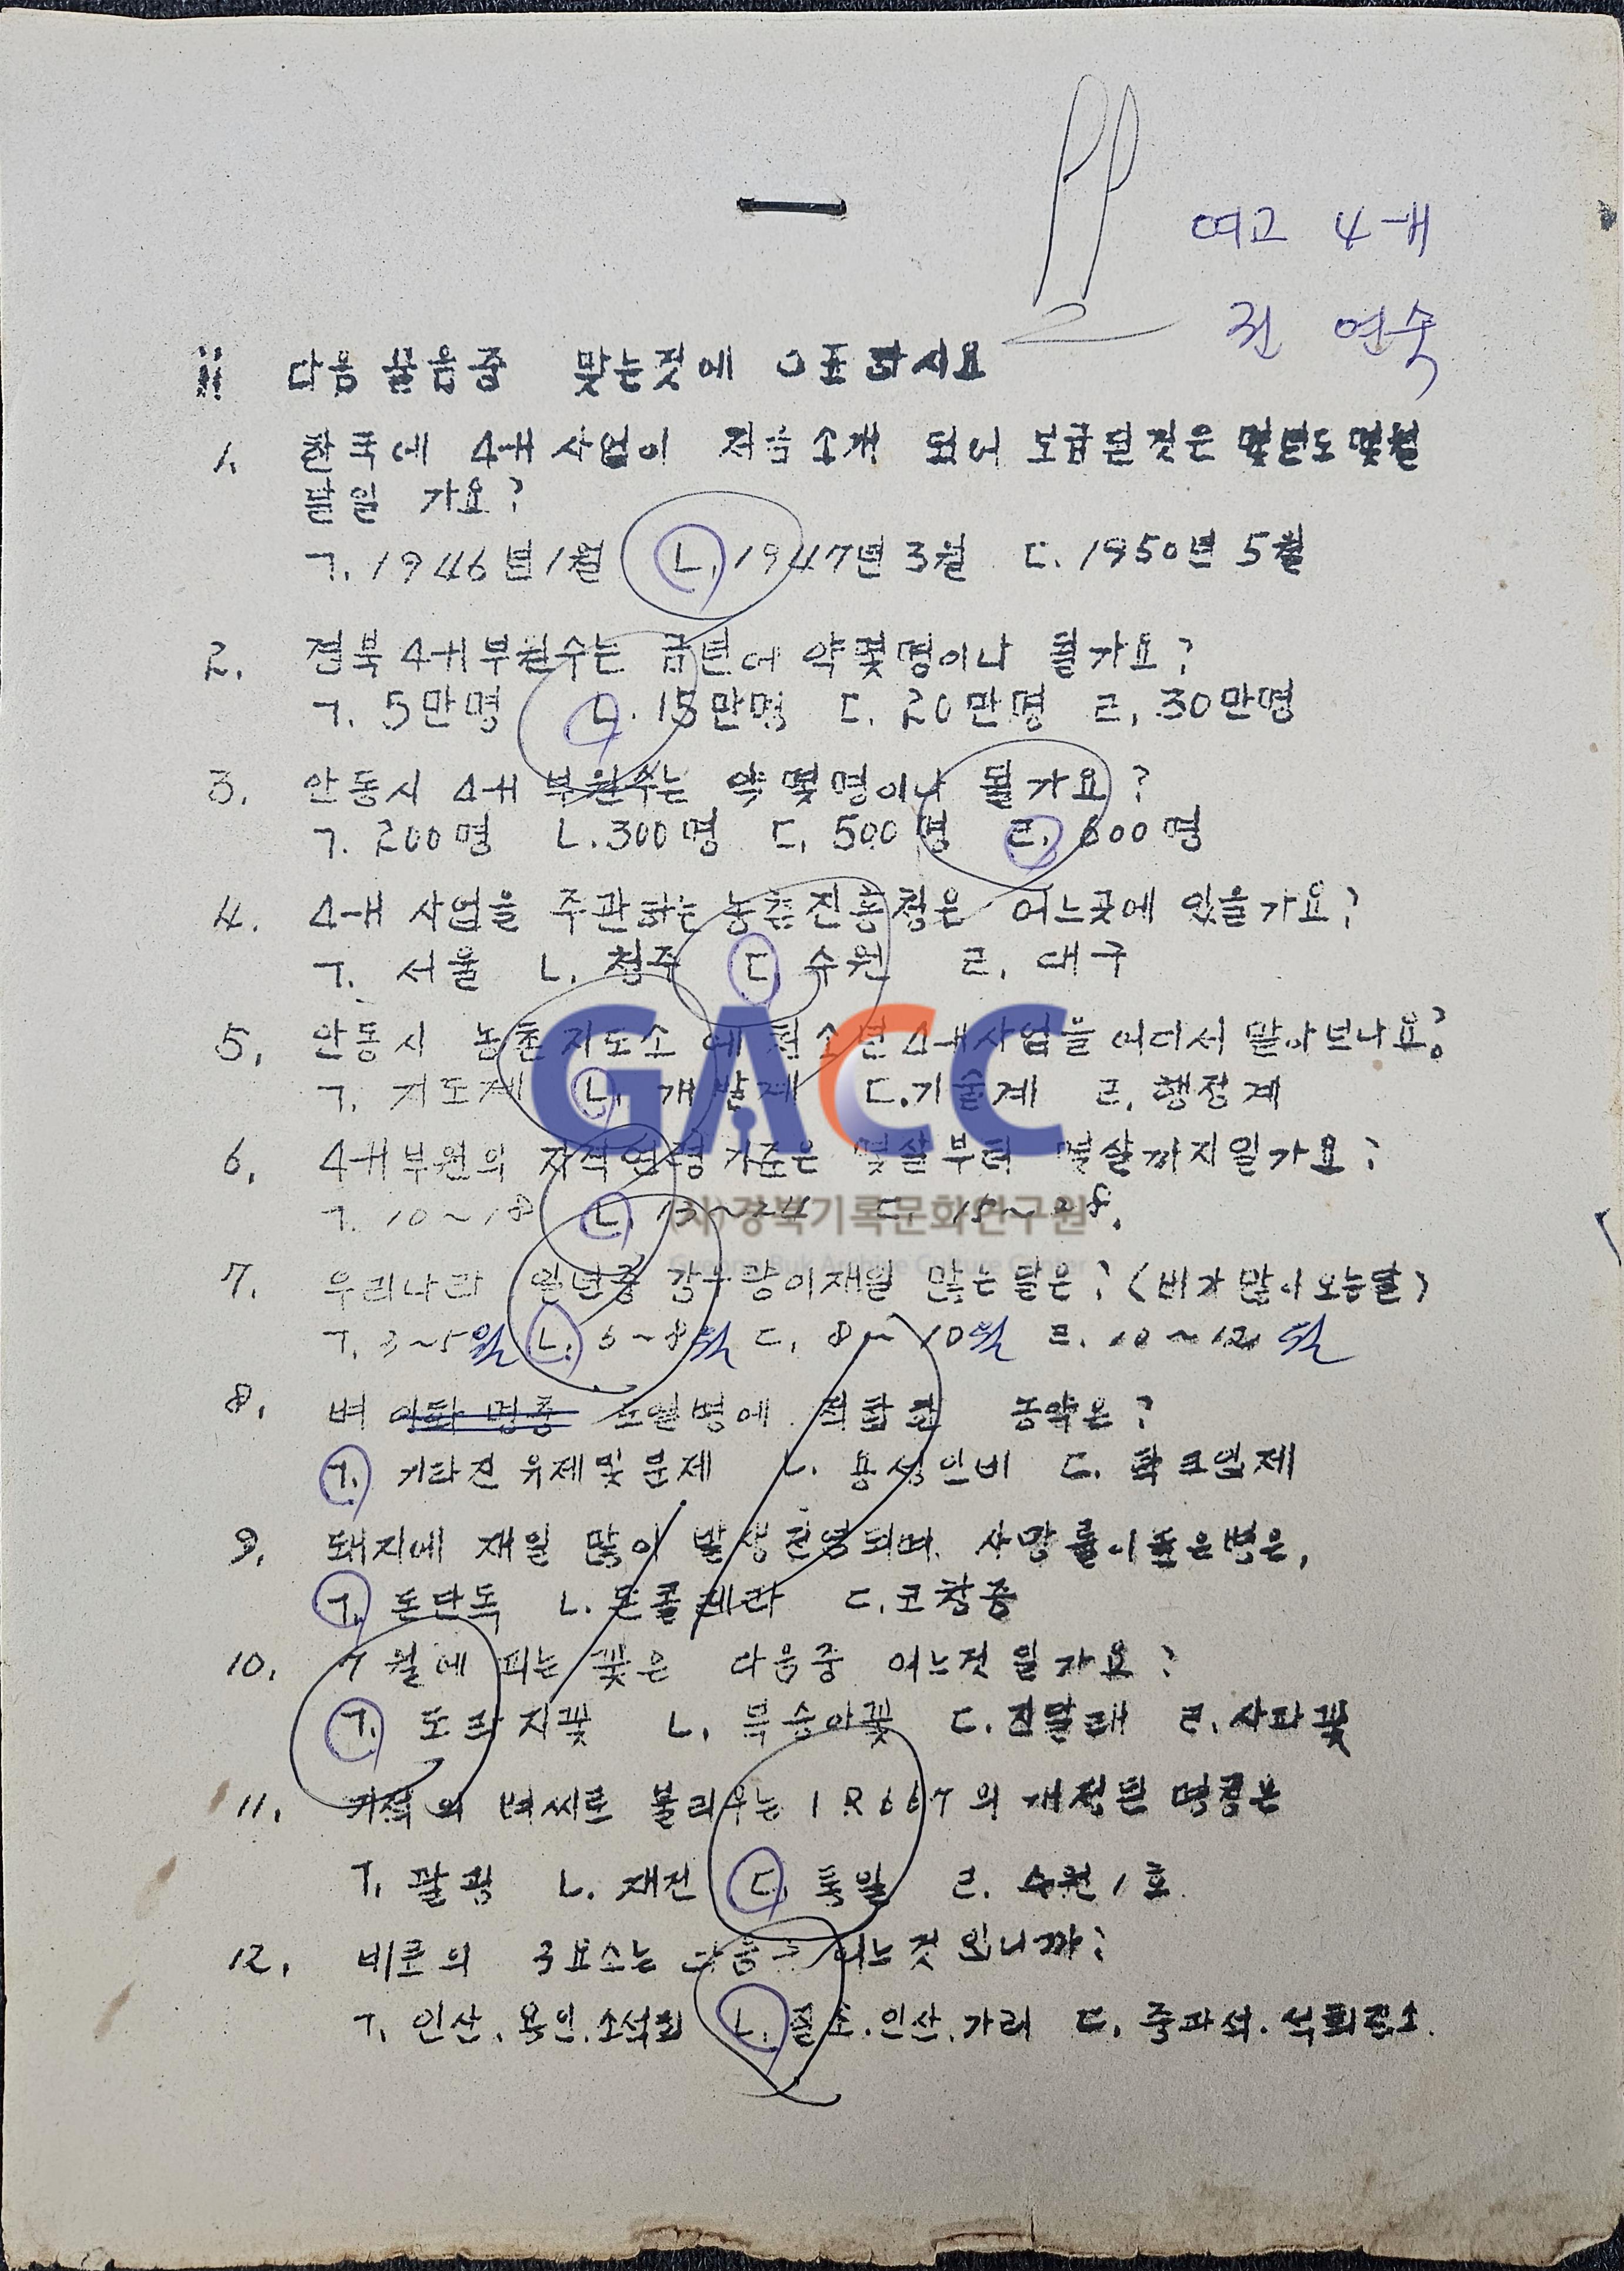 여고 4-H
전 연숙
다음 물음중 맞는것에 O표 하시요
1. 한국에 4-H 사업이 처음 소개 되어 보급된것은 몇년도 몇월
달일 가요?
ㄱ. 1946년 1월 ㄴ. 1947년 3월 ㄷ. 1950년 5월
2. 경북 4-H 부원수는 금년에 약몇명이나 될가요?
ㄱ. 5만명 ㄴ. 15만명 ㄷ. 20만명 ㄹ. 30만명
3. 안동시 4-H 부원수는 약 몇명이나 될가요?
ㄱ. 200명 ㄴ. 300명 ㄷ. 500명 ㄹ. 600명
4. 4-H 사업을 주관하는 농촌진흥청은 어느곳에 있을가요?
ㄱ. 서울 ㄴ. 청주 ㄷ. 수원 ㄹ. 대구
5. 안동시 농촌지도소에 청소년 4-H사업을 어디서 맡아보나요?
ㄱ. 지도계 ㄴ. 개발계 ㄷ. 기술계 ㄹ. 행정계
GACC
6. 4-H부원의 자격연령 기준은 몇살부터 몇살까지일가요?
ㄱ. 10~18 ㄴ. 13~24 ㄷ. 15~28.
(사)경북기록문화연구원
7. 우리나라 일년중 강우량이재일 많는달은? (비가많이오는달)
ㄱ. 3~5월 ㄴ. 6~8월 ㄷ. 8~10월 ㄹ. 10~12월
8. 벼 도열병에 적합한 농약은?
ㄱ. 키타진 유제및 분제 ㄴ. 용성인비 ㄷ. 탁크입제
9. 돼지에 재일 많이 발생전염되며 사망률이높은병은,
ㄱ. 돈단독 ㄴ. 돈콜레라 ㄷ. 코창증
10. 7월에 피는 꽃은 다음중 어느것 일가요?
ㄱ. 도라지꽃 ㄴ. 복숭아꽃 ㄷ. 진달래 ㄹ. 사과꽃
11. 기적의 벼씨로 불리우는 IR667의 개정된 명칭은
ㄱ. 팔굉 ㄴ. 재건 ㄷ. 통일 ㄹ. 수원 1호
12. 비료의 3요소는 다음중 어느것 입니까?
ㄱ. 인산. 용인. 소석회 ㄴ. 질소. 인산. 가리 ㄷ. 중과석. 석회질소.